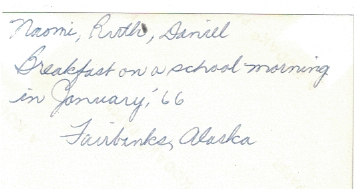 Naomi, Ruth, Daniel
Breakfast on a school morning
in January, '66
Fairbanks, Alaska